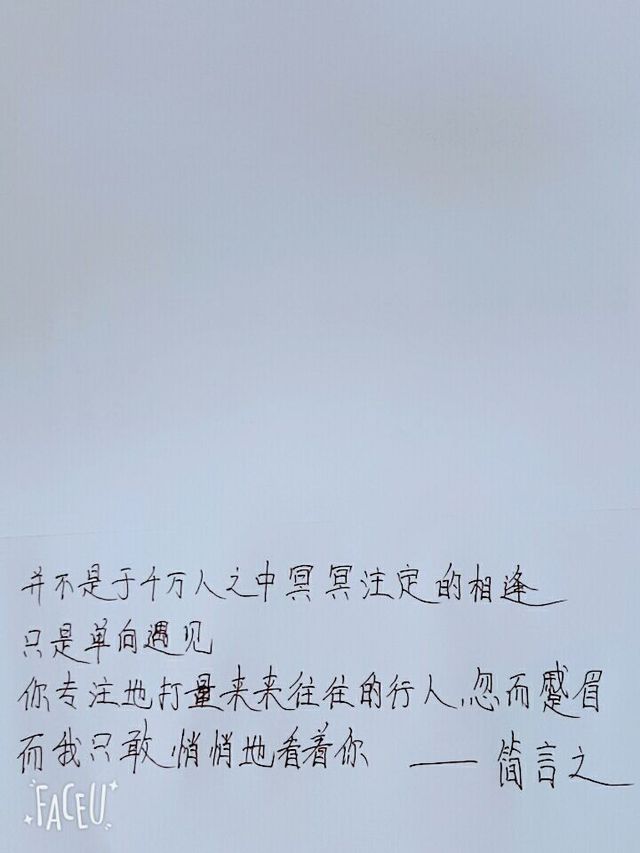 并不是于千万人之中冥冥注定的相逢
只是单向遇见
你专注地打量来来往往的行人,忽而蹙眉
而我只敢悄悄地看着你 —— 简言之
FACEU